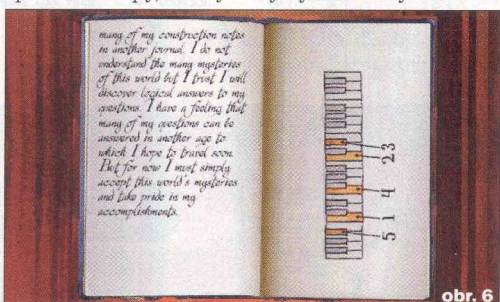 many of my construction notes
in another journal. I do not
understand the many mysteries
of this world but I trust I will
discover logical answers to my
questions. I have a feeling that
many of my questions can be
answered in another age to
which I hope to travel soon.
But for now I must simply
accept this world's mysteries
and take pride in my
accomplishments.
3
2
4
1
5
obr. 6